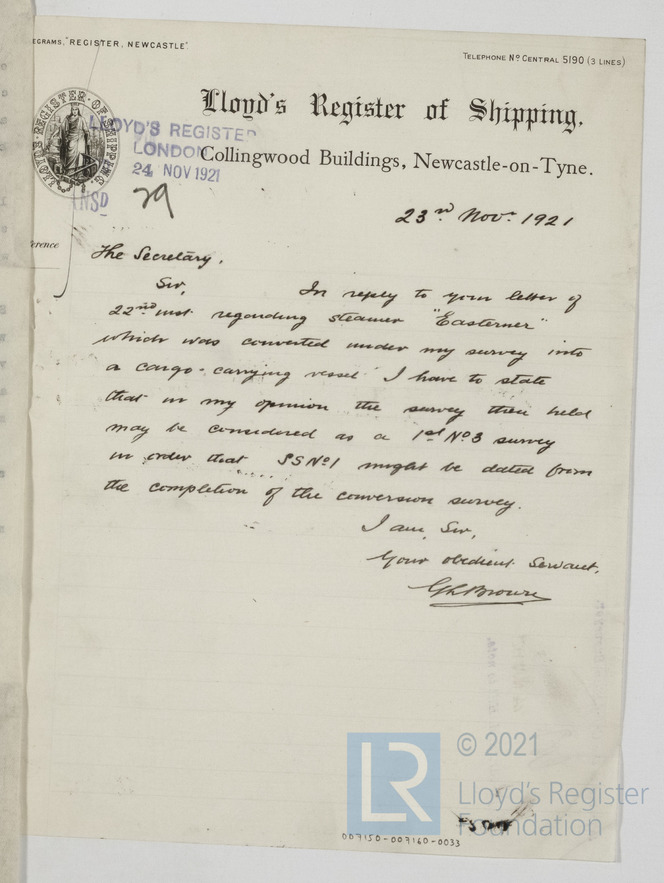 EGRAMS, "REGISTER, NEWCASTLE"
TELEPHONE No CENTRAL 5190 (3 LINES)
LLOYD'S REGISTER OF SHIPPING
Lloyd's Register of Shipping,
Collingwood Buildings, Newcastle-on-Tyne.
LLOYD'S REGISTER
LONDON
24 NOV 1921
ANSD
29
23rd Novr 1921
erence
The Secretary,
Sir, In reply to your letter of
22nd inst regarding steamer "Easterner"
which was converted under my survey into
a cargo-carrying vessel I have to state
that in my opinion the survey then held
may be considered as a 1st No 3 survey
in order that SS No 1 might be dated from
the completion of the conversion survey.
I am, Sir,
Your obedient Servant,
© 2021
LR
Lloyd's Register
Foundation
007150-007160-0033